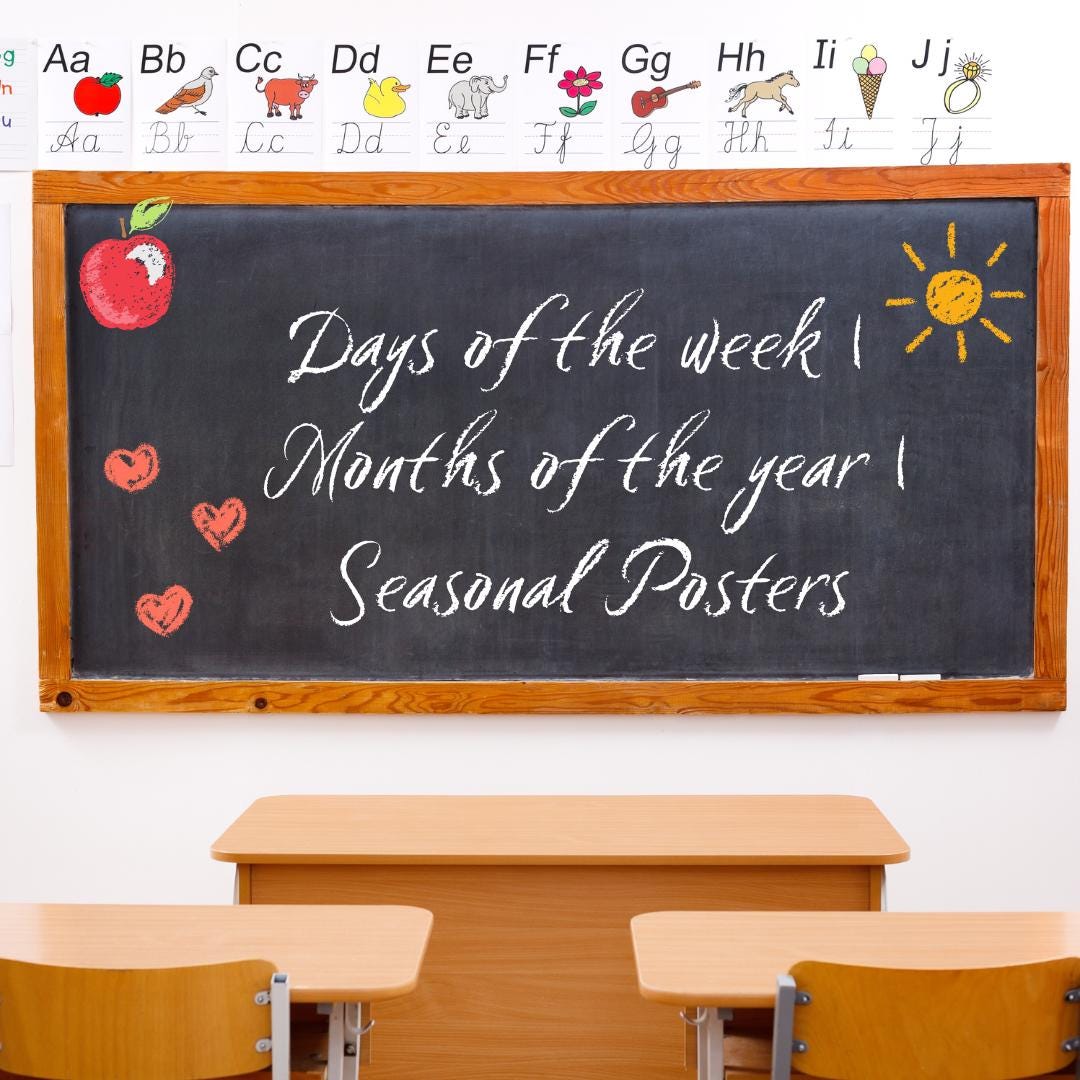 Aa Bb Cc Dd Ee Ff Gg Hh Ii Jj
Aa Bb Cc Dd Ee Ff Gg Hh Ii Jj
Days of the week |
Months of the year |
Seasonal Posters